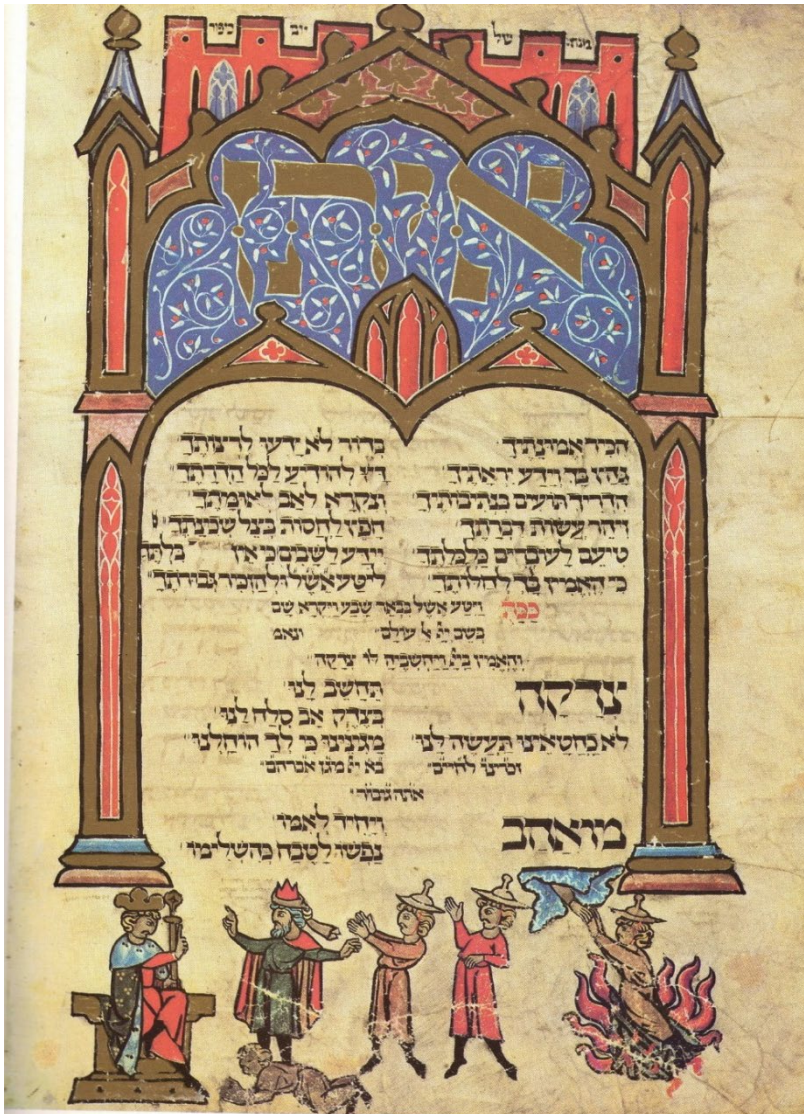 מנח׳ של יום כיפור
איתן
הכיר אמונתיך בדור לא ידעו לרצותך
גהץ בך וידע יראתיך דץ להודיע לכל הדרתך
הדריך תועים בנתיבותיך ונקרא לאב לאומתך
זיהר עשות דברתך חפץ לחסות בצל שכינתך
טיעם לעוברים כלכלתך יידע לשבים כי אין בלתך
כי האמין בך לחלותך ליטע אשל ולהזכר גבורתך
ככת׳ ויטע אשל בבאר שבע ויקרא שם
בשם יי אל עולם ונאמ
והאמין ביי ויחשביה לו צדקה
צדקה תחשב לנו
בצדק אב סלח לנו
לא כחטאינו תעשה לנו מגינינו כי לך הוחלנו
זכרינו לחיים בא יי מגן אברהם
אתה גיבור
מואהב ויחיד לאמו
נפשו לטבח בהשלימו